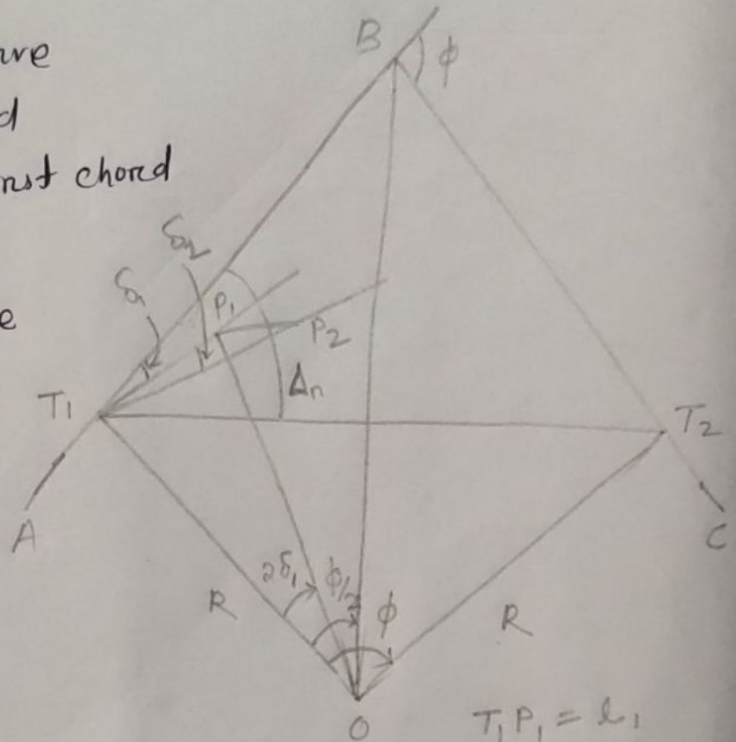 ure
d
nst chord
e
B
φ
δ1
δ2
P1
P2
Δn
T1
T2
A
C
2δ1
φ/2
φ
R
R
O
T1P1 = l1